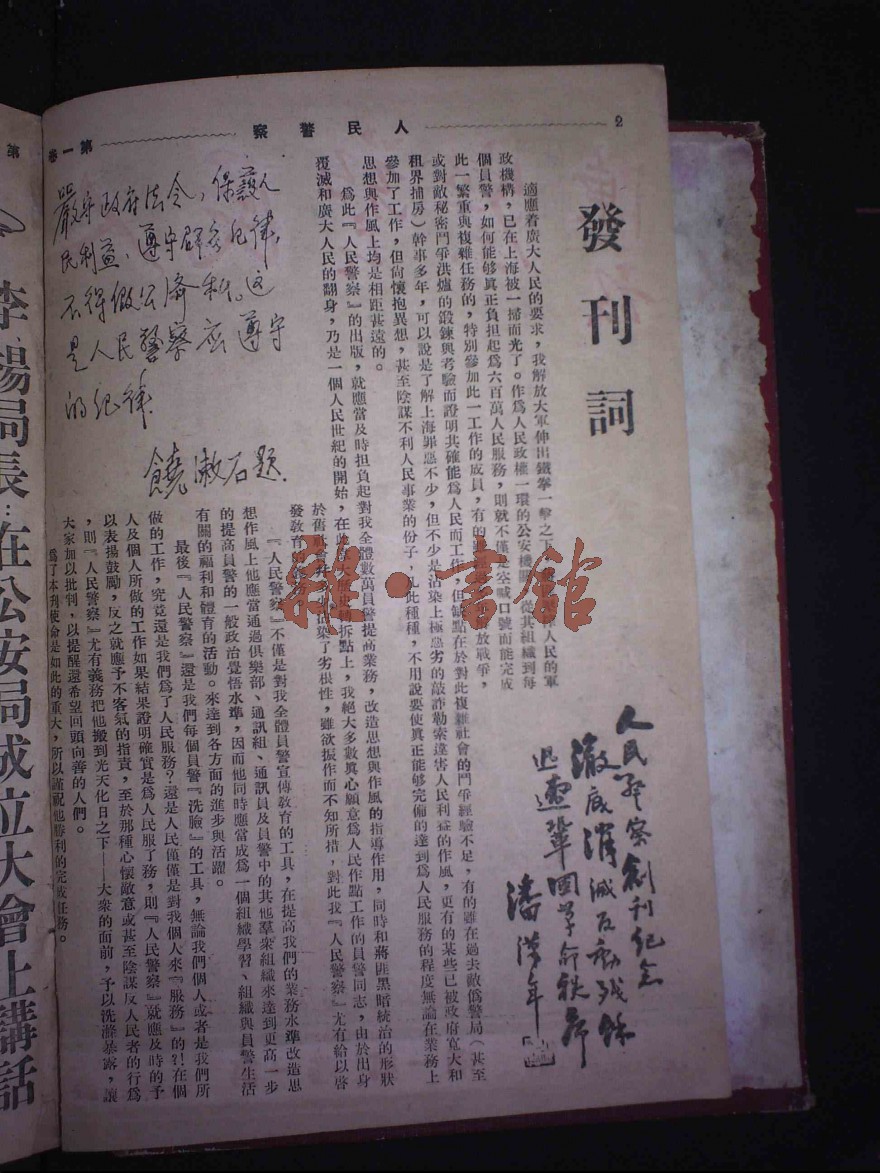 2
人民警察
第一卷
發刊詞
適應着廣大人民的要求，我解放大軍伸出鐵拳一擊之下
人民的軍
政機構，已在上海被一掃而光了。作爲人民政權一環的公安機關
從其組織到每
個員警，如何能够真正負担起爲六百萬人民服務，則就不僅是空喊口號而能完成
此一繁重與複雜任務的，特別參加此一工作的成員，有的
放戰爭，
或對敵秘密鬥爭洪爐的鍛鍊與考驗而證明其確能爲人民而工作，但缺點在於對此複雜社會的鬥爭經驗不足，有的雖在過去敵僞警局（甚至
租界捕房）幹事多年，可以說是了解上海罪惡不少，但不少是沾染上極惡劣的敲詐勒索違害人民利益的作風，更有的某些已被政府寬大和
參加了工作，但尙懷抱異想，甚至陰謀不利人民事業的份子，凡此種種，不用說要使眞正能够完備的達到爲人民服務的程度無論在業務上
思想與作風上均是相距甚遠的。
爲此『人民警察』的出版，就應當及時担負起對我全體數萬員警提高業務，改造思想與作風的指導作用，同時和蔣匪黑暗統治的形狀
覆滅和廣大人民的翻身，乃是一個人民世紀的開始，在此
轉拆點上，我絕大多數眞心願意爲人民作點工作的員警同志，由於出身
於舊
染了劣根性，雖欲振作而不知所措，對此我『人民警察』尤有給以啓
發敎育的
『人民警察』不僅是對我全體員警宣傳敎育的工具，在提高我們的業務水準改造思
想作風上他應當通過俱樂部、通訊組、通訊員及員警中的其他羣衆組織來達到更高一步
的提高員警的一般政治覺悟水準，因而他同時應當成爲一個組織學習、組織與員警生活
有關的福利和體育的活動。來達到各方面的進步與活躍。
最後『人民警察』還是我們每個員警『洗臉』的工具，無論我們個人或者是我們所
做的工作，究竟還是我們爲了人民服務？還是人民僅僅是對我個人來『服務』的？！在個
人及個人所做的工作如果結果證明確實是爲人民服了務，則『人民警察』就應及時的予
以表揚鼓勵，反之就應予不客氣的指責，至於那種心懷敵意或甚至陰謀反人民者的行爲
，則『人民警察』尤有義務把他搬到光天化日之下——大衆的面前，予以洗滌暴露，讓
大家加以批判，以提醒還希望回頭向善的人們。
爲了本刊使命是如此的重大，所以謹祝他勝利的完成任務。
人民警察創刊紀念
澈底消滅反動殘餘
迅速鞏固革命秩序
潘漢年
嚴守政府法令，保護人
民利益，遵守群衆紀律，
不得假公濟私。這
是人民警察應遵守
的紀律。
饒漱石題
李楊局長：在公安局成立大會上講話
第
雜·書館